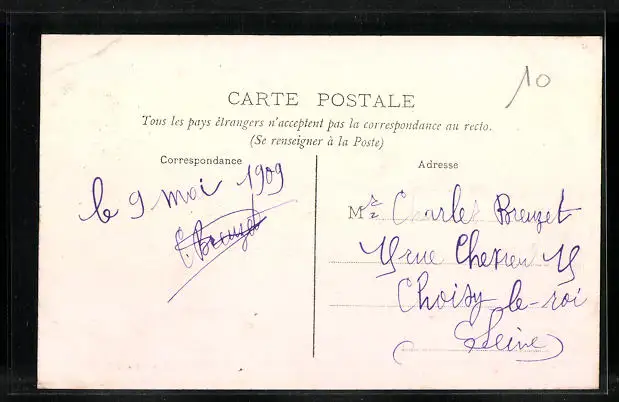 10
CARTE POSTALE
Tous les pays étrangers n'acceptent pas la correspondance au recto.
(Se renseigner à la Poste)
Correspondance
Adresse
le 9 mai 1909
C. Breuzet
Mr Charles Breuzet
rue
Choisy-le-roi
(Seine)